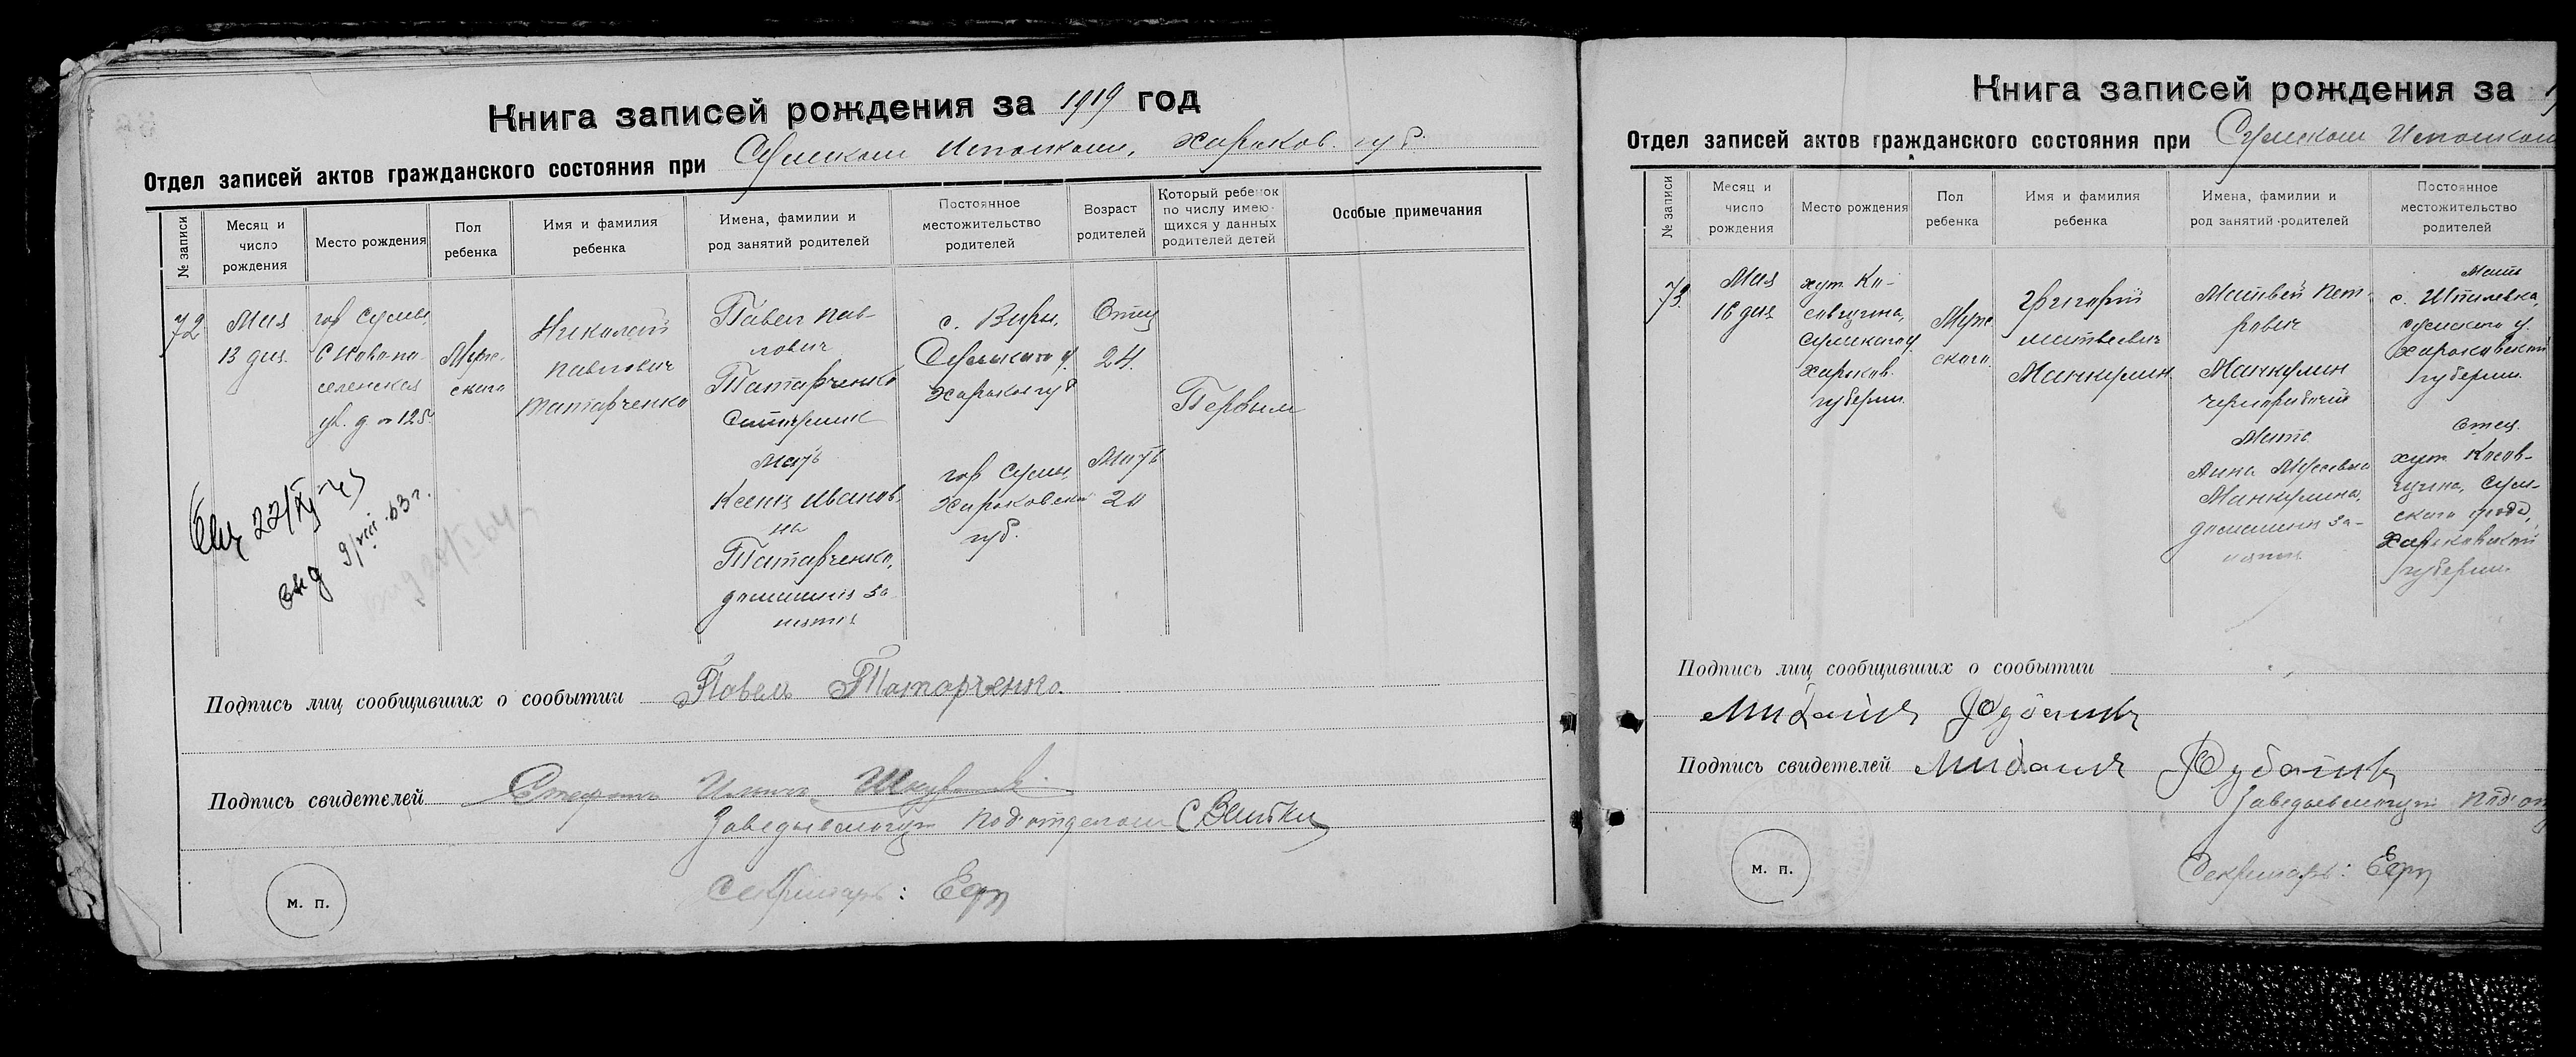 Книга записей рождения за 1919 год
Отдел записей актов гражданского состояния при Сумском Исполкоме, Харьков. губ.
№ записи
Месяц и
число
рождения
Место рождения
Пол
ребенка
Имя и фамилия
ребенка
Имена, фамилии и
род занятий родителей
Постоянное
местожительство
родителей
Возраст
родителей
Который ребенок
по числу имею-
щихся у данных
родителей детей
Особые примечания
72
Мая
13 дня
гор Сумы,
селенская
ул. д № 125
Муже-
ского
Николай
Павлович
Татарченко
Павел Пав-
лович
Татарченко
Мать
Ксения Иванов-
на
Татарченко,
домашния за-
нятия
с. Виры,
Сумского у.
Харьков губ
гор Сумы,
Харьковской
губ.
Отец
24.
Мать
20
Первым
22/XI
9/VIII-63 г.
Подпись лиц сообщивших о сообытии Павель Татарченко.
Подпись свидетелей Стефан
Заведывающий Подотделом
Секретарь:
м. п.
Книга записей рождения за 1
Отдел записей актов гражданского состояния при Сумском Исполком
№ записи
Месяц и
число
рождения
Место рождения
Пол
ребенка
Имя и фамилия
ребенка
Имена, фамилии и
род занятий родителей
Постоянное
местожительство
родителей
73.
Мая
16 дня
хут. Ко-
совщина,
Сумского у
Харьков.
губернии
Муже-
ского.
Григорий
Матвеевич
Манкулин
Матвей Пет-
рович
Манкулин
чернорабочий
Мать
Анна
Манкулина,
домашния за-
нятия
Мать
с.
Сумского у.
Харьковской
губернии.
Отец
хут. Косов-
щина, Сум-
ского
Харьковской
губернии.
Подпись лиц сообщивших о сообытии
Михаил
Подпись свидетелей Михаил
Заведывающий Подот
Секретарь:
м. п.